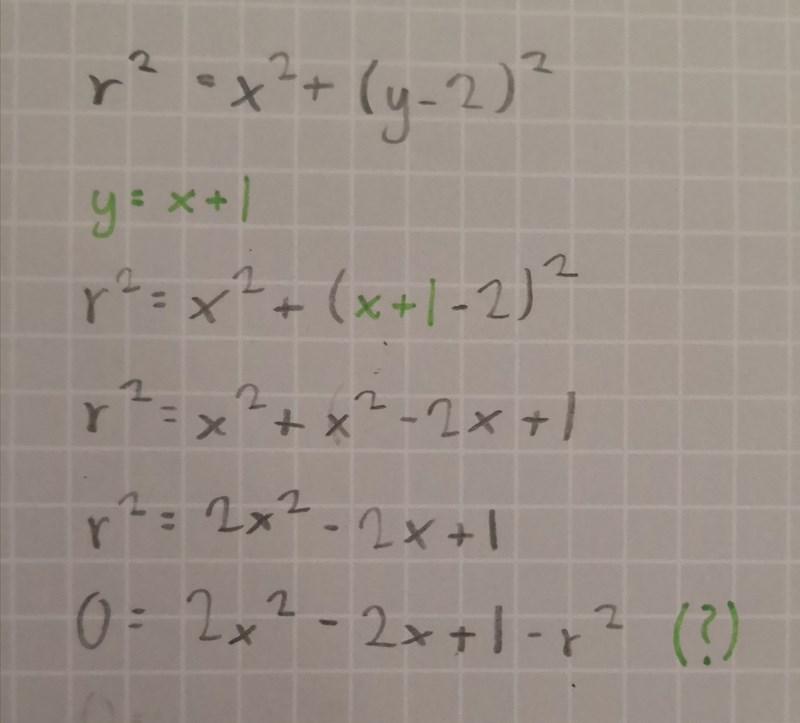 r² = x² + (y - 2)²
y = x + 1
r² = x² + (x + 1 - 2)²
r² = x² + x² - 2x + 1
r² = 2x² - 2x + 1
0 = 2x² - 2x + 1 - r² (?)